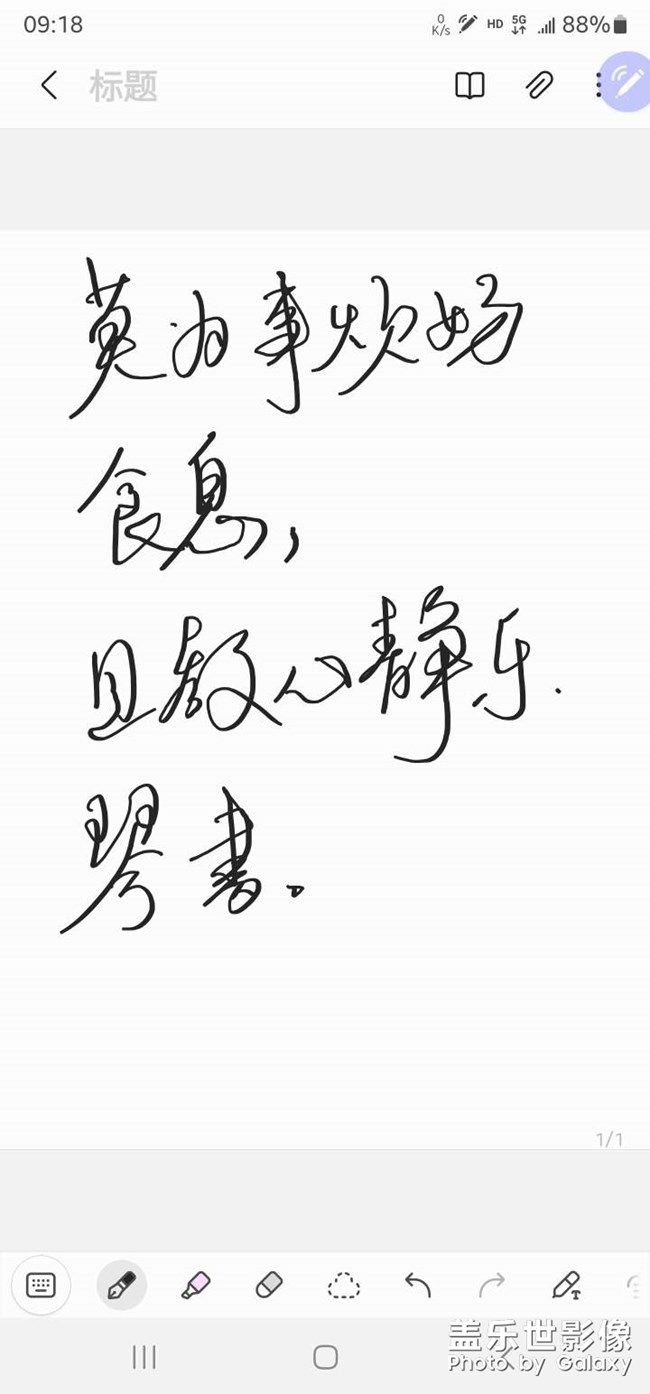 09:18
0 K/s HD 5G 88%
标题
莫为事烦妨
食息,
且教心静乐
琴书。
1/1
T
盖乐世影像
Photo by Galaxy